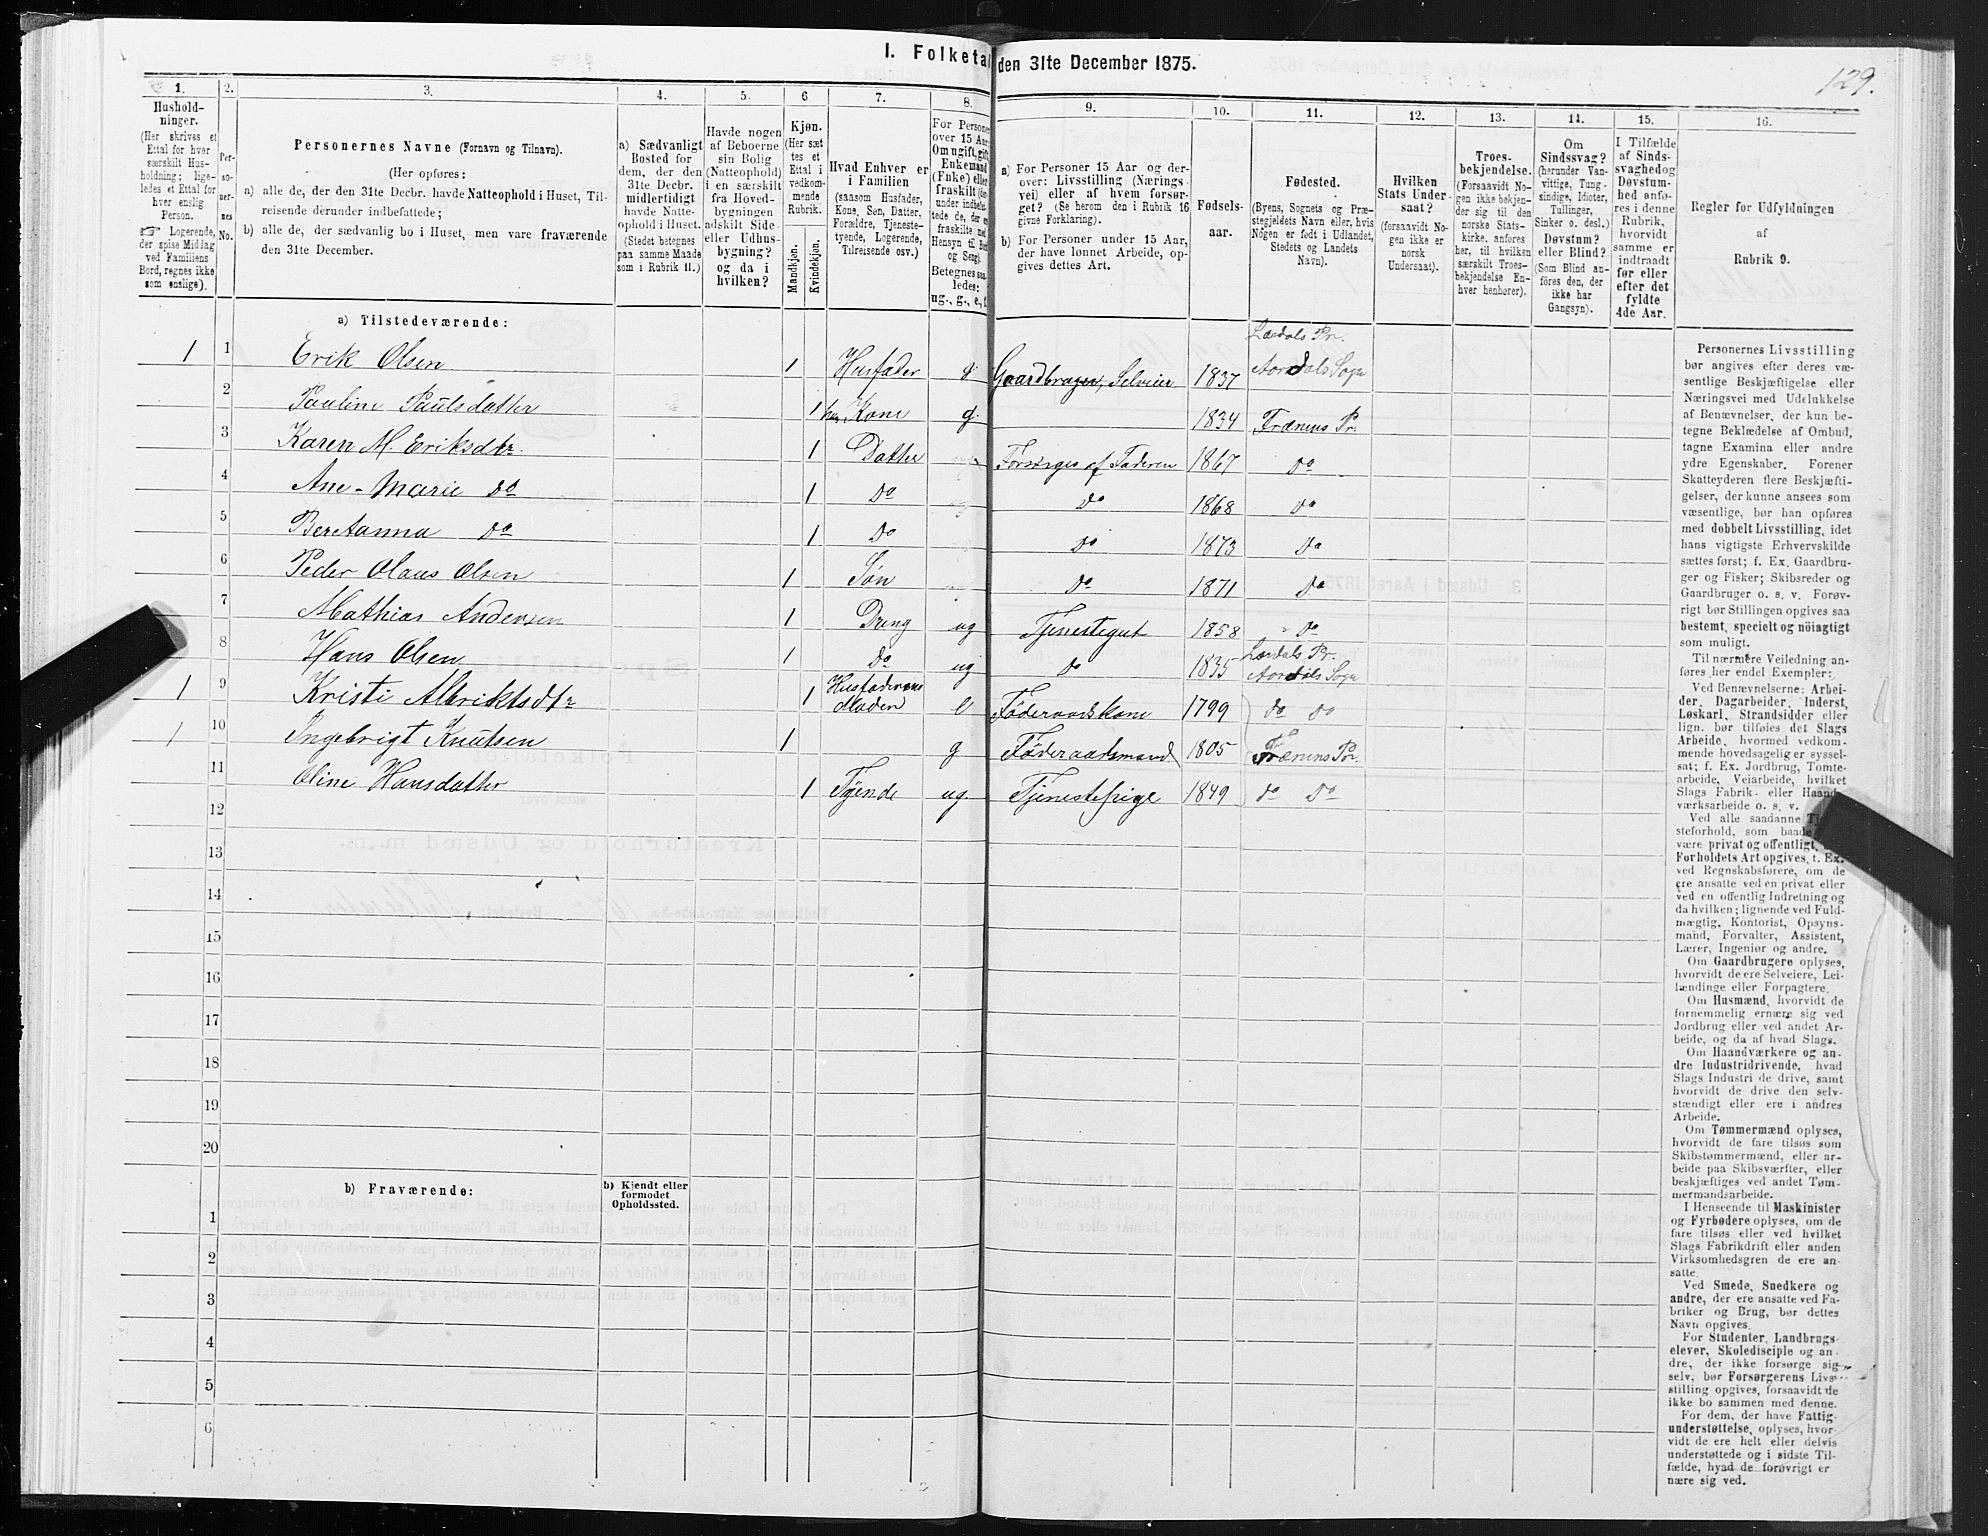 I. Folketal den 31te December 1875.
129.
1. 2. 3. 4. 5. 6 7. 8. 9. 10. 11. 12. 13. 14. 15. 16.
Husholdninger.
(Her skrives et Ettal for hver særskilt Husholdning; ligeledes et Ettal for hver enslig Person.
☞ Logerende, der spise Middag ved Familiens Bord, regnes ikke som enslige).
Personernes No.
Personernes Navne (Fornavn og Tilnavn).
(Her opføres:
a) alle de, der den 31te Decbr. havde Natteophold i Huset, Tilreisende derunder indbefattede;
b) alle de, der sædvanlig bo i Huset, men vare fraværende den 31te December.
a) Sædvanligt Bosted for dem, der den 31te Decbr. midlertidigt havde Natteophold i Huset. (Stedet betegnes paa samme Maade som i Rubrik 11.)
Havde nogen af Beboerne sin Bolig (Natteophold) i en særskilt fra Hovedbygningen adskilt Side- eller Udhusbygning? og da i hvilken?
Kjøn. (Her sættes et Ettal i vedkommende Rubrik.
Mandkjøn. Kvindekjøn.
Hvad Enhver er i Familien (saasom Husfader, Kone, Søn, Datter, Forældre, Tjenestetyende, Logerende, Tilreisende osv.)
For Personer over 15 Aar: Om ugift, gift, Enkemand (Enke) eller fraskilt
Betegnes saaledes: ug., g., e., f.
a) For Personer 15 Aar og derover: Livsstilling (Næringsvei) eller af hvem forsørget? (Se herom den i Rubrik 16 givne Forklaring).
b) For Personer under 15 Aar, der have lønnet Arbeide, opgives dettes Art.
Fødselsaar.
Fødested.
(Byens, Sognets og Præstegjeldets Navn eller, hvis Nogen er født i Udlandet, Stedets og Landets Navn).
Hvilken Stats Undersaat? (forsaavidt Nogen ikke er norsk Undersaat).
Troesbekjendelse. (Forsaavidt Nogen ikke bekjender sig til den norske Statskirke, anføres her, til hvilken særskilt Troesbekjendelse Enhver henhører).
Om Sindssvag? (herunder Vanvittige, Tungsindige, Idioter, Tullinger, Sinker o. desl.) Døvstum? eller Blind? (Som Blind anføres den, der ikke har Gangsyn).
I Tilfælde af Sindssvaghed og Døvstumhed anføres i denne Rubrik, hvorvidt samme er indtraadt før eller efter det fyldte 4de Aar.
Regler for Udfyldningen af Rubrik 9.
a) Tilstedeværende:
1 1 Erik Olsen 1 Husfader g Gaardbruger, Selveier 1837 Lærdals Pr. Aardals Sogn
2 Pauline Paulsdatter 1 hs Kone g. 1834 Frænens Pr.
3 Karen M. Eriksdtr. 1 Datter Forsørges af Faderen 1867 Do
4 Ane-Marie Do 1 Do Do 1868 Do
5 Beretanna Do 1 Do Do 1873 Do
6 Peder Olaus Olsen 1 Søn Do 1871 Do
7 Mathias Andersen 1 Dreng ug Tjenestegut 1858 Do
8 Hans Olsen 1 Do ug Do 1835 Lærdals Pr. Aardals Sogn
1 9 Kristi Albriktsdtr 1 Husfaderens Moder e Føderaadskone 1799 Do Do
1 10 Ingebrigt Knutsen 1 g Føderaadsmand 1805 Frænens Pr.
11 Oline Hansdatter 1 Tyende ug. Tjenestepige 1849 Do Do
12
13
14
15
16
17
18
19
20
b) Fraværende: b) Kjendt eller formodet Opholdssted.
1
2
3
4
5
6
Personernes Livsstilling bør angives efter deres væsentlige Beskjæftigelse eller Næringsvei med Udelukkelse af Benævnelser, der kun betegne Beklædelse af Ombud, tagne Examina eller andre ydre Egenskaber. Forener Skatteyderen flere Beskjæftigelser, der kunne ansees som væsentlige, bør han opføres med dobbelt Livsstilling, idet hans vigtigste Erhvervskilde sættes først; f. Ex. Gaardbruger og Fisker; Skibsreder og Gaardbruger o. s. v. Forøvrigt bør Stillingen opgives saa bestemt, specielt og nöiagtigt som muligt.
Til nærmere Veiledning anføres her endel Exempler:
Ved Benævnelserne: Arbeider, Dagarbeider, Inderst, Løskarl, Strandsidder eller lign. bør tilføies det Slags Arbeide, hvormed vedkommende hovedsagelig er sysselsat; f. Ex. Jordbrug, Tomtearbeide, Veiarbeide, hvilket Slags Fabrik- eller Haandværksarbeide o. s. v.
Ved alle saadanne Tjenesteforhold, som baade være privat og offentligt, Forholdets Art opgives, t. Ex. ved Regnskabsførere, om de ere ansatte ved en privat eller ved en offentlig Indretning og da hvilken; lignende ved Fuldmægtig, Kontorist, Opsynsmand, Forvalter, Assistent, Lærer, Ingeniør og andre.
Om Gaardbrugere oplyses, hvorvidt de ere Selveiere, Leilændinge eller Forpagtere.
Om Husmænd, hvorvidt de fornemmelig ernære sig ved Jordbrug eller ved andet Arbeide, og da af hvad Slags.
Om Haandværkere og andre Industridrivende, hvad Slags Industri de drive, samt hvorvidt de drive den selvstændigt eller ere i andres Arbeide.
Om Tømmermænd oplyses, hvorvidt de fare tilsøs som Skibstømmermænd, eller arbeide paa Skibsværfter, eller beskjæftiges ved andet Tømmermandsarbeide.
I Henseende til Maskinister og Fyrbødere oplyses, om de fare tilsøs eller ved hvilket Slags Fabrikdrift eller anden Virksomhedsgren de ere ansatte.
Ved Smede, Snedkere og andre, der ere ansatte ved Fabriker og Brug, bør dettes Navn opgives.
For Studenter, Landbrugselever, Skoledisciple og andre, der ikke forsørge sig selv, bør Forsørgerens Livsstilling opgives, forsaavidt de ikke bo sammen med denne.
For dem, der have Fattigunderstøttelse, oplyses, hvorvidt de ere helt eller delvis understøttede og i sidste Tilfælde, hvad de forøvrigt ernære sig ved.